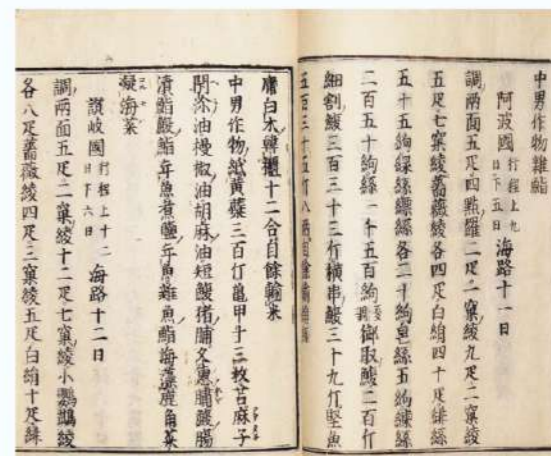 中男作物雜鮨
阿波國 行程上九日下五日 海路十一日
調兩面五疋四點羅二疋二窠綾九疋二窠綾
五疋七窠綾薔薇綾各四疋白絹四十疋緋絲
五十五絇綠絲縹絲各二十絇皂絲五絇練絲
二百五十絇絲一千五百絇 御取鰒二百斤
細割鰒三百三十三斤橫串鰒三十九斤堅魚
五百三十五斤八兩自餘
庸白木韓櫃十二合自餘輸米
中男作物紙黃蘗三百斤龜甲十三枚苫麻子
油槾椒油胡麻油短鰒猪脯久惠脯鰒腸
漬鮨鰒鮨年魚煮鹽年魚雜魚鮨海藻鹿角菜
凝海菜
讚岐國 行程上十二日下六日 海路十二日
調兩面五疋二窠綾十二疋七窠綾小鸚鵡綾
各八疋薔薇綾四疋三窠綾五疋白絹十疋緋